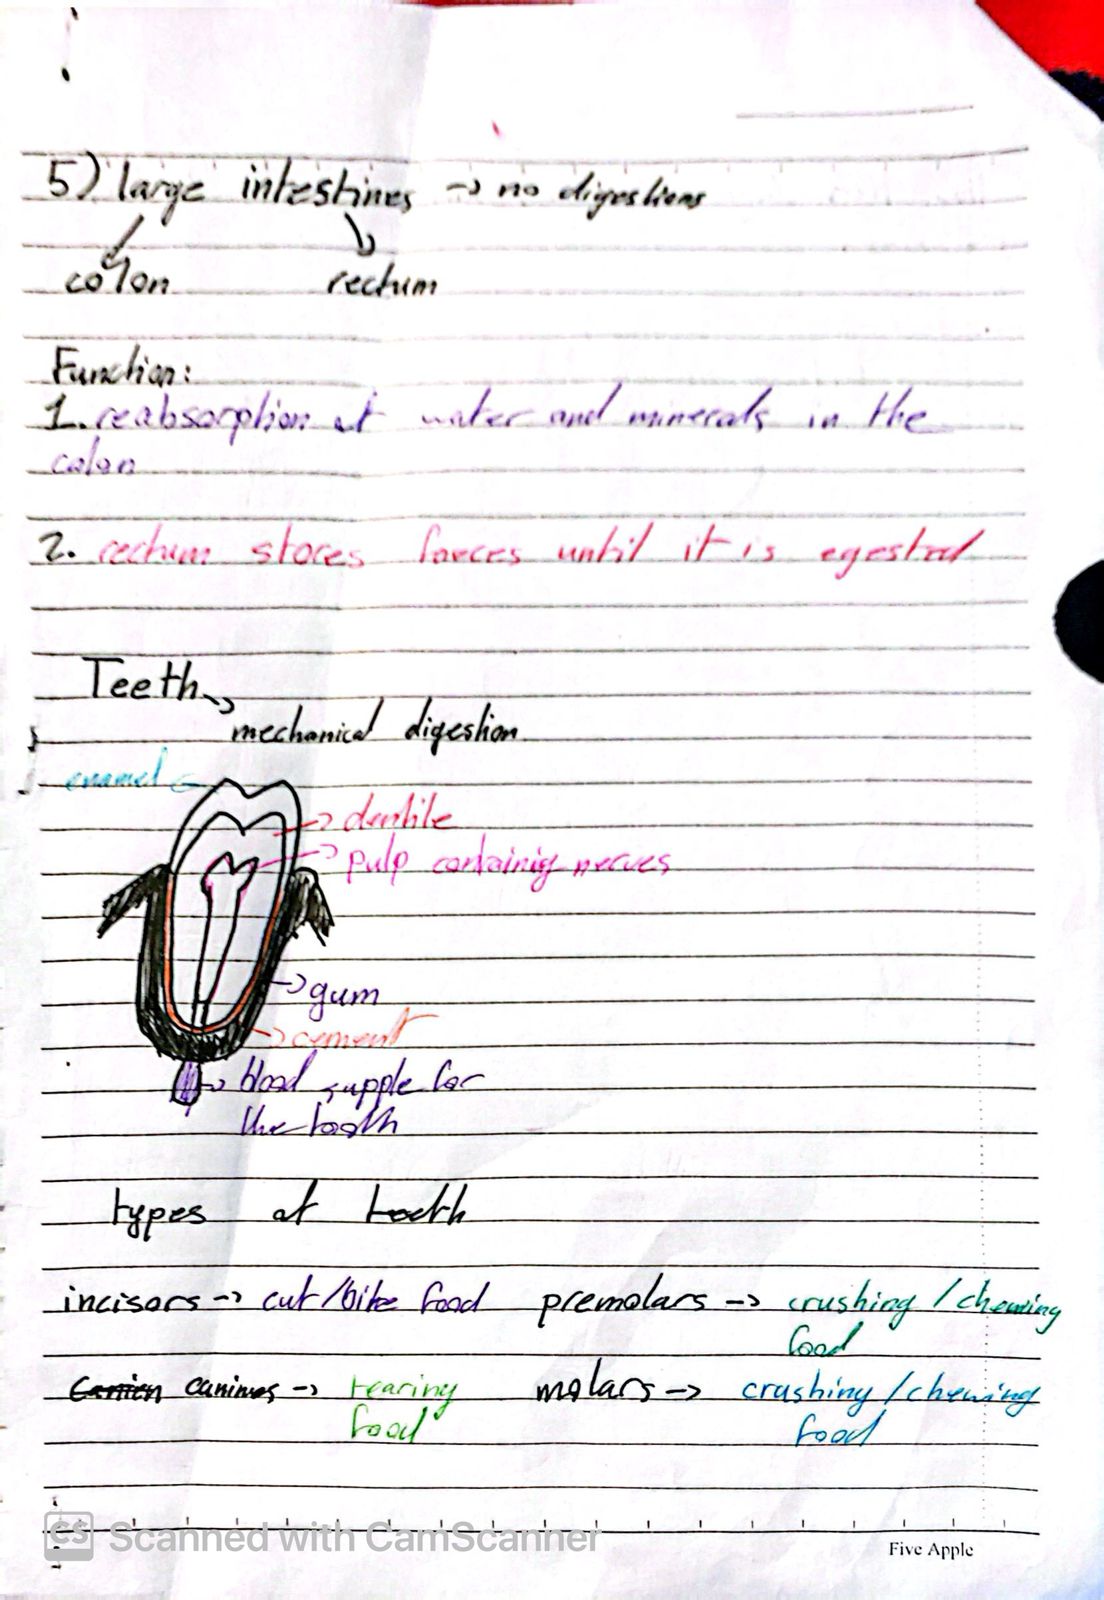 5) large intestines → no digestions
colon rectum
Function:
1. reabsorption of water and minerals in the
colon
2. rectum stores faeces until it is egested
Teeth →
mechanical digestion
enamel
→ dentile
→ pulp containig nerves
→ gum
→ cement
→ blood supple for
the tooth
types of teeth
incisors → cut/bite food premolars → crushing / chewing
food
canines → tearing molars → crushing / chewing
food food
CS Scanned with CamScanner
Five Apple